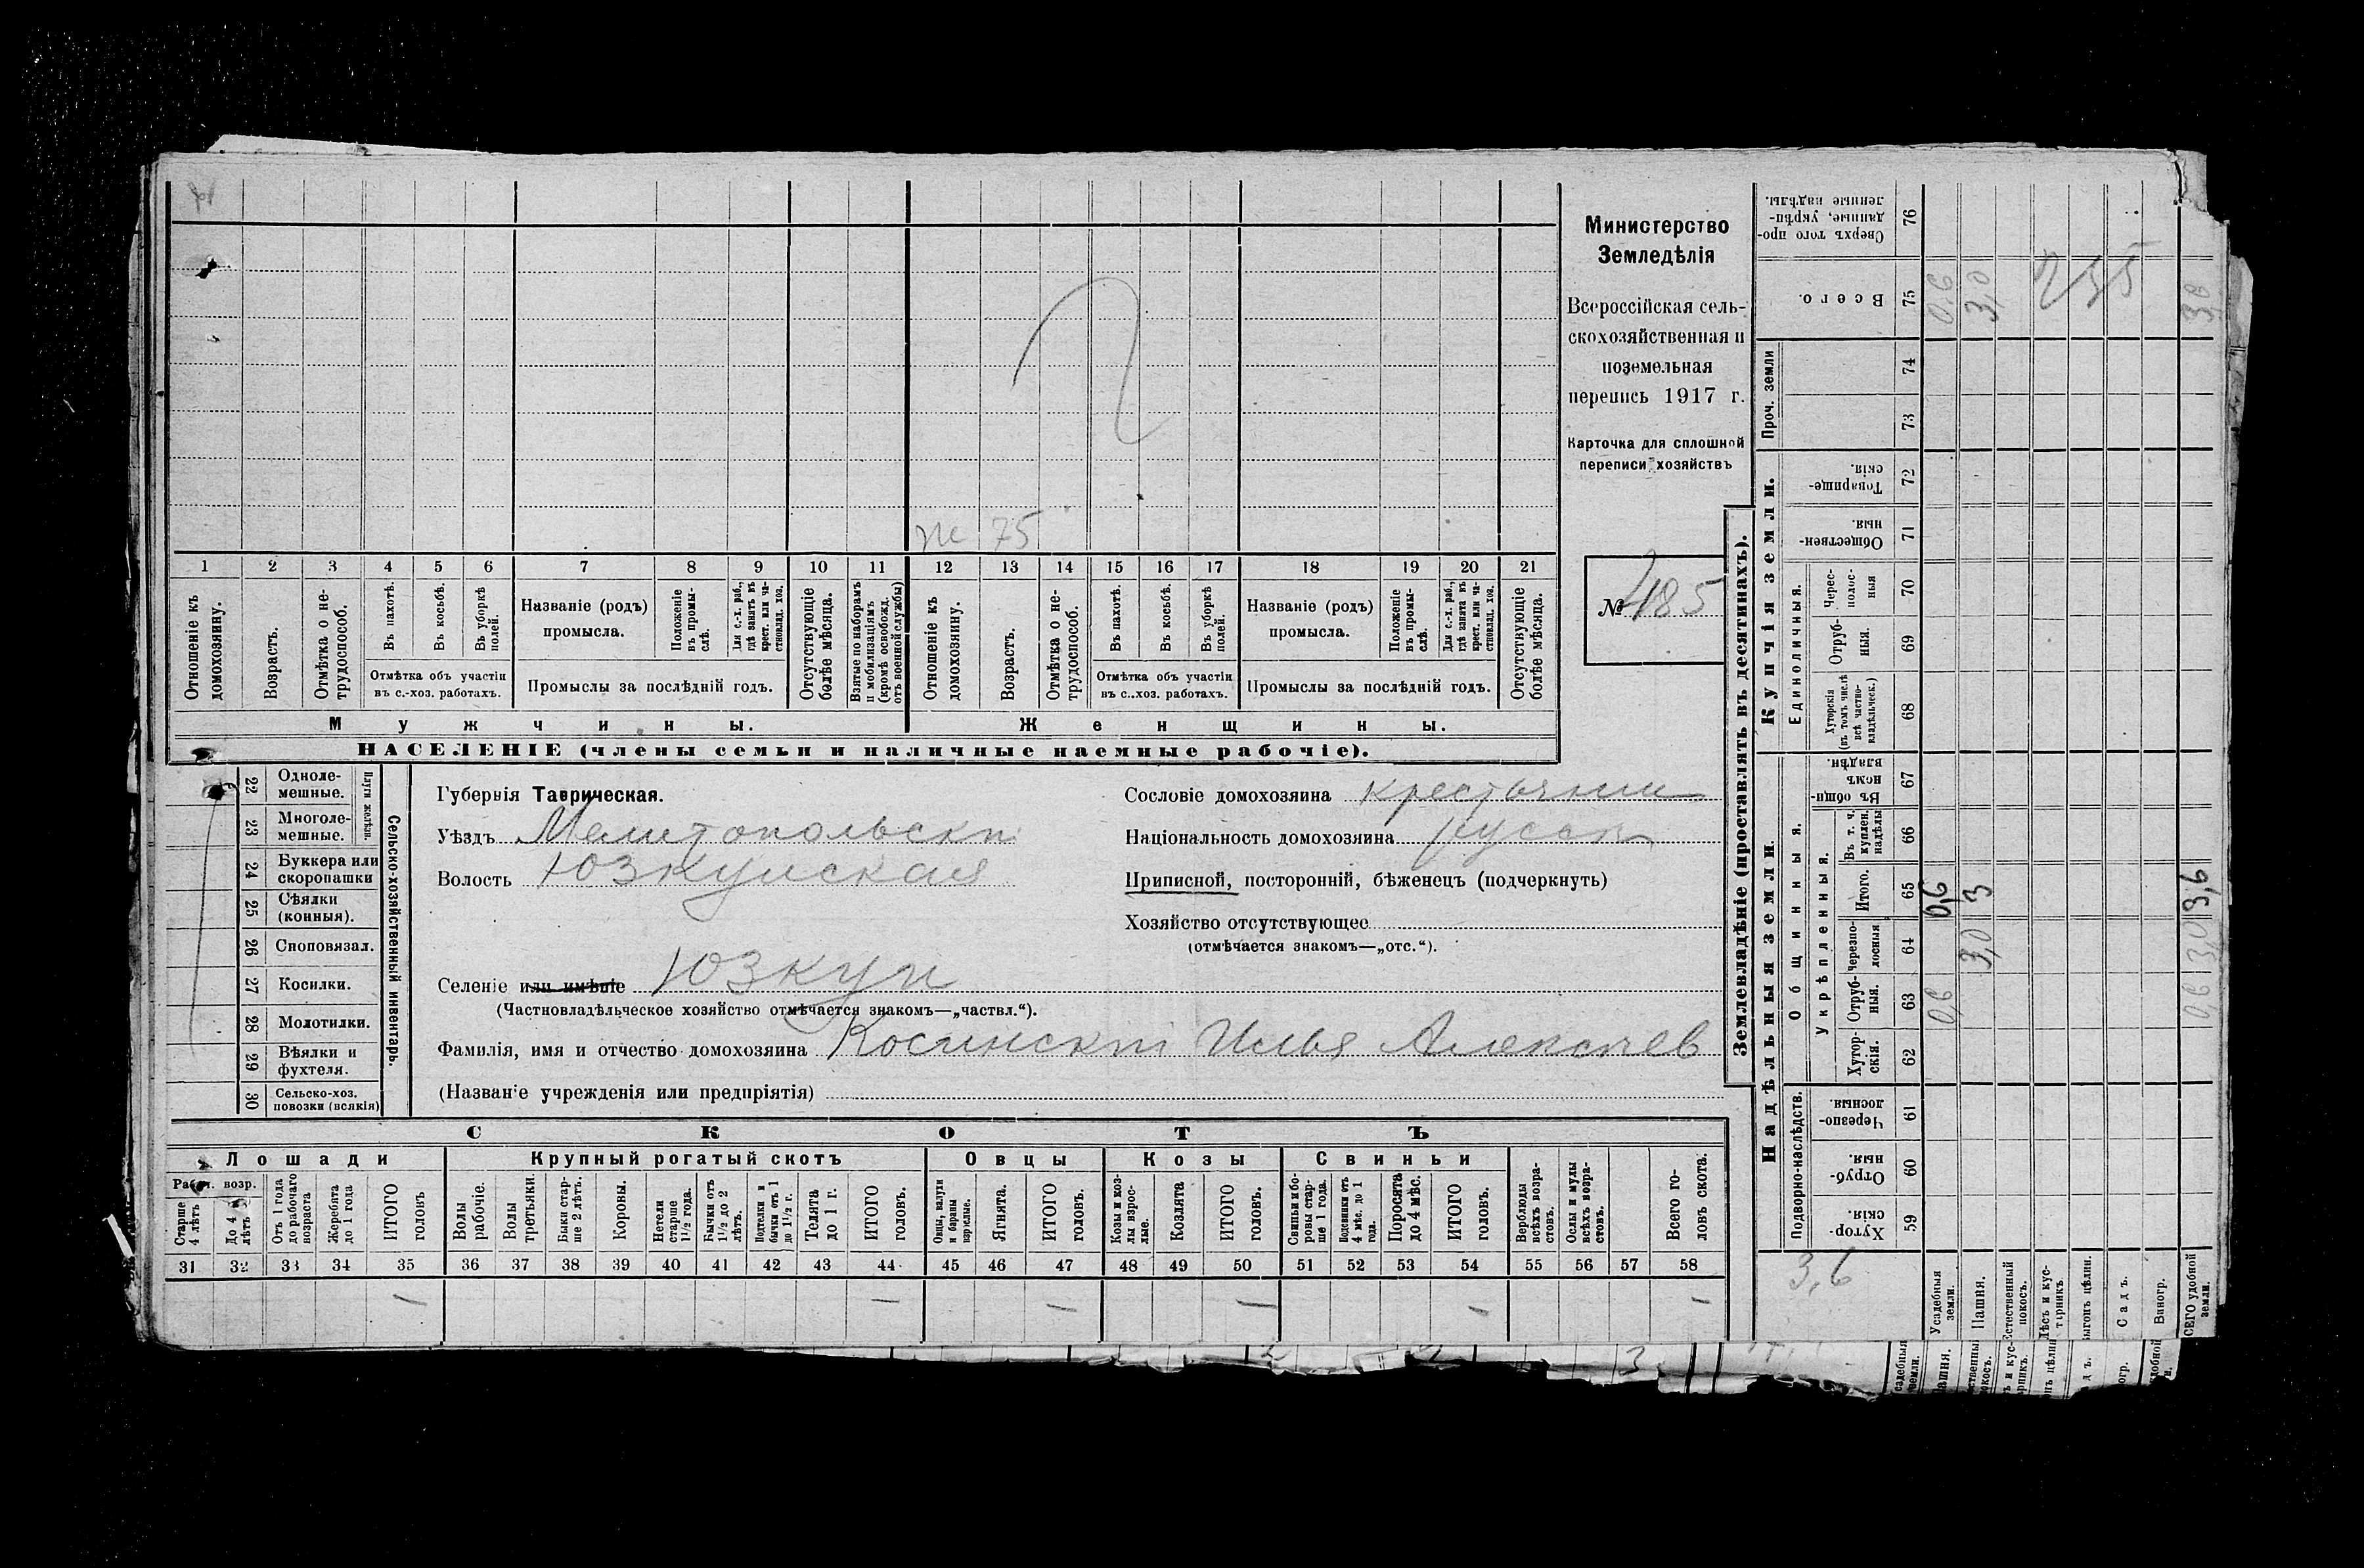 Министерство
Земледѣлія
Всероссійская сель-
скохозяйственная и
поземельная
перепись 1917 г.
Карточка для сплошной
переписи хозяйствъ
№ 485
ж 75
1 2 3 4 5 6 7 8 9 10 11 12 13 14 15 16 17 18 19 20 21
Отношеніе къ домохозяину.
Возрастъ.
Отмѣтка о не-
трудоспособ.
Въ пахотѣ.
Въ косьбѣ.
Въ уборкѣ полей.
Отмѣтка объ участіи
въ с.-хоз. работахъ.
Названіе (родъ)
промысла.
Положеніе въ промы-
слѣ.
Для с.-х. раб.,
гдѣ занятъ въ
крест. или ча-
стновлад. хоз.
Промыслы за послѣдній годъ.
Отсутствующіе
болѣе мѣсяца.
Взятые по наборамъ
и мобилизаціямъ
(кромѣ освобожд.
отъ военной службы)
Отношеніе къ
домохозяину.
Возрастъ.
Отмѣтка о не-
трудоспособ.
Въ пахотѣ.
Въ косьбѣ.
Въ уборкѣ
полей.
Отмѣтка объ участіи
въ с..хоз. работахъ.
Названіе (родъ)
промысла.
Положеніе
въ промы-
слѣ.
Для с.-х. раб.,
гдѣ занята въ
крест. или ча-
стновлад. хоз.
Промыслы за послѣдній годъ.
Отсутствующіе
болѣе мѣсяца.
Мужчины.
Женщины.
НАСЕЛЕНІЕ (члены семьи и наличные наемные рабочіе).
22 Одноле-
мешные.
23 Многоле-
мешные.
Плуги желѣзн.
24 Буккера или
скоропашки
25 Сѣялки
(конныя).
26 Сноповязал.
27 Косилки.
28 Молотилки.
29 Вѣялки и
фухтеля.
30 Сельско-хоз.
повозки (всякія)
Сельско-хозяйственный инвентарь.
Губернія Таврическая.
Уѣздъ Мелитопольскій
Волость Юзкуйская
Селеніе или имѣніе Юзкуи
(Частновладѣльческое хозяйство отмѣчается знакомъ—„частвл.“).
Фамилія, имя и отчество домохозяина Косинскій Илья Алексѣев
(Названіе учрежденія или предпріятія)
Сословіе домохозяина крестьянин
Національность домохозяина русск
Приписной, посторонній, бѣженецъ (подчеркнуть)
Хозяйство отсутствующее
(отмѣчается знакомъ—„отс.“).
СКОТЪ
Лошади
Крупный рогатый скотъ
Овцы
Козы
Свиньи
Рабоч. возр.
Старше
4 лѣтъ
До 4
лѣтъ
Отъ 1 года
до рабочаго
возраста
Жеребята
до 1 года
ИТОГО
головъ
Волы
рабочіе.
Волы
третьяки.
Быки стар-
ше 2 лѣтъ.
Коровы.
Нетели
старше
1½ года.
Бычки отъ
1½ до 2
лѣтъ.
Подтелки и
бычки отъ 1
до 1½ г.
Телята
до 1 г.
ИТОГО
головъ.
Овцы, валухи
и бараны
взрослые.
Ягнята.
ИТОГО
головъ.
Козы и коз-
лы взрос-
лые.
Козлята
ИТОГО
головъ.
Свиньи и бо-
ровы стар-
ше 1 года.
Подсвинки отъ
4 мѣс. до 1
года.
Поросята
до 4 мѣс.
ИТОГО
головъ.
Верблюды
всѣхъ возра-
стовъ.
Ослы и мулы
всѣхъ возра-
стовъ.
Всего го-
ловъ скота.
31 32 33 34 35 36 37 38 39 40 41 42 43 44 45 46 47 48 49 50 51 52 53 54 55 56 57 58
— — — — — —
Землевладѣніе (проставлять въ десятинахъ).
Купчія земли.
Надѣльныя земли.
Сверхъ того про-
данные, укрѣп-
ленные надѣлы.
76
Всего.
75 0,6 3,0 3,6
235
Проч. земли
74
73
Товарище-
скія.
72
Обществен-
ныя.
71
Единоличныя.
Черес-
полос-
ныя
70
Отруб-
ныя.
69
Хуторскія
(въ томъ числѣ
всѣ частно-
владѣльческ.)
68
Общинныя.
Въ общи-
номъ
владѣн.
67
Укрѣпленныя.
Въ т. ч.
куплен.
надѣлы
66
Итого.
65 0,6 3 3,6
Черезпо-
лосныя
64 3,0 3,0
Отруб-
ныя.
63 0,6 0,6
Хутор-
скія.
62
Подворно-наслѣдств.
Черезпо-
лосныя.
61
Отруб-
ныя.
60
Хутор-
скія.
59
3,6
Усадебныя
земли.
Пашня.
Естественный
покосъ.
Лѣсъ и кус-
тарникъ
Садъ.
Виногр.
СЕГО удобной
земли.